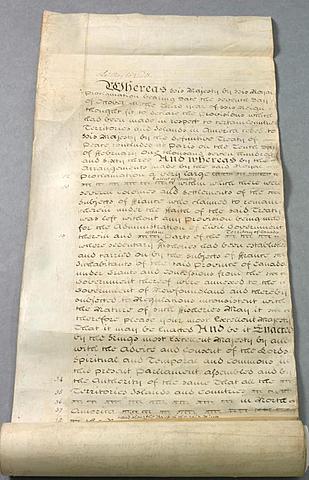 Whereas his Majesty by his Royal
Proclamation bearing date the seventh Day
of October in the Third year of his Reign
thought fit to declare the Provisions which
had been made in respect to certain Countries
Territories and Islands in America ceded to
his Majesty by the definitive Treaty of
Peace concluded at Paris on the Tenth day
of February One thousand seven hundred
and sixty three And whereas by the
Arrangements made by the said Royal
Proclamation a very large
within which there were
several Colonies and Settlements of the
Subjects of France who claimed to remain
therein under the Faith of the said Treaty
was left without any Provision being made
for the Administration of Civil Government
therein and Parts of the
where sedentary Fisheries had been established
and carried on by the Subjects of France
Inhabitants of the said Province of Canada
under Grants and Concessions from the
Government thereof were annexed to the
Government of Newfoundland and thereby
subjected to Regulations inconsistent with
the Nature of such Fisheries May it
therefore please your most Excellent Majesty
That it may be Enacted And be it Enacted
by the Kings most Excellent Majesty by and
with the Advice and consent of the Lords
Spiritual and Temporal and Commons in
this present Parliament assembled and by
34 the Authority of the same That all the
35 Territories Islands and Countries
36 in North
37 America